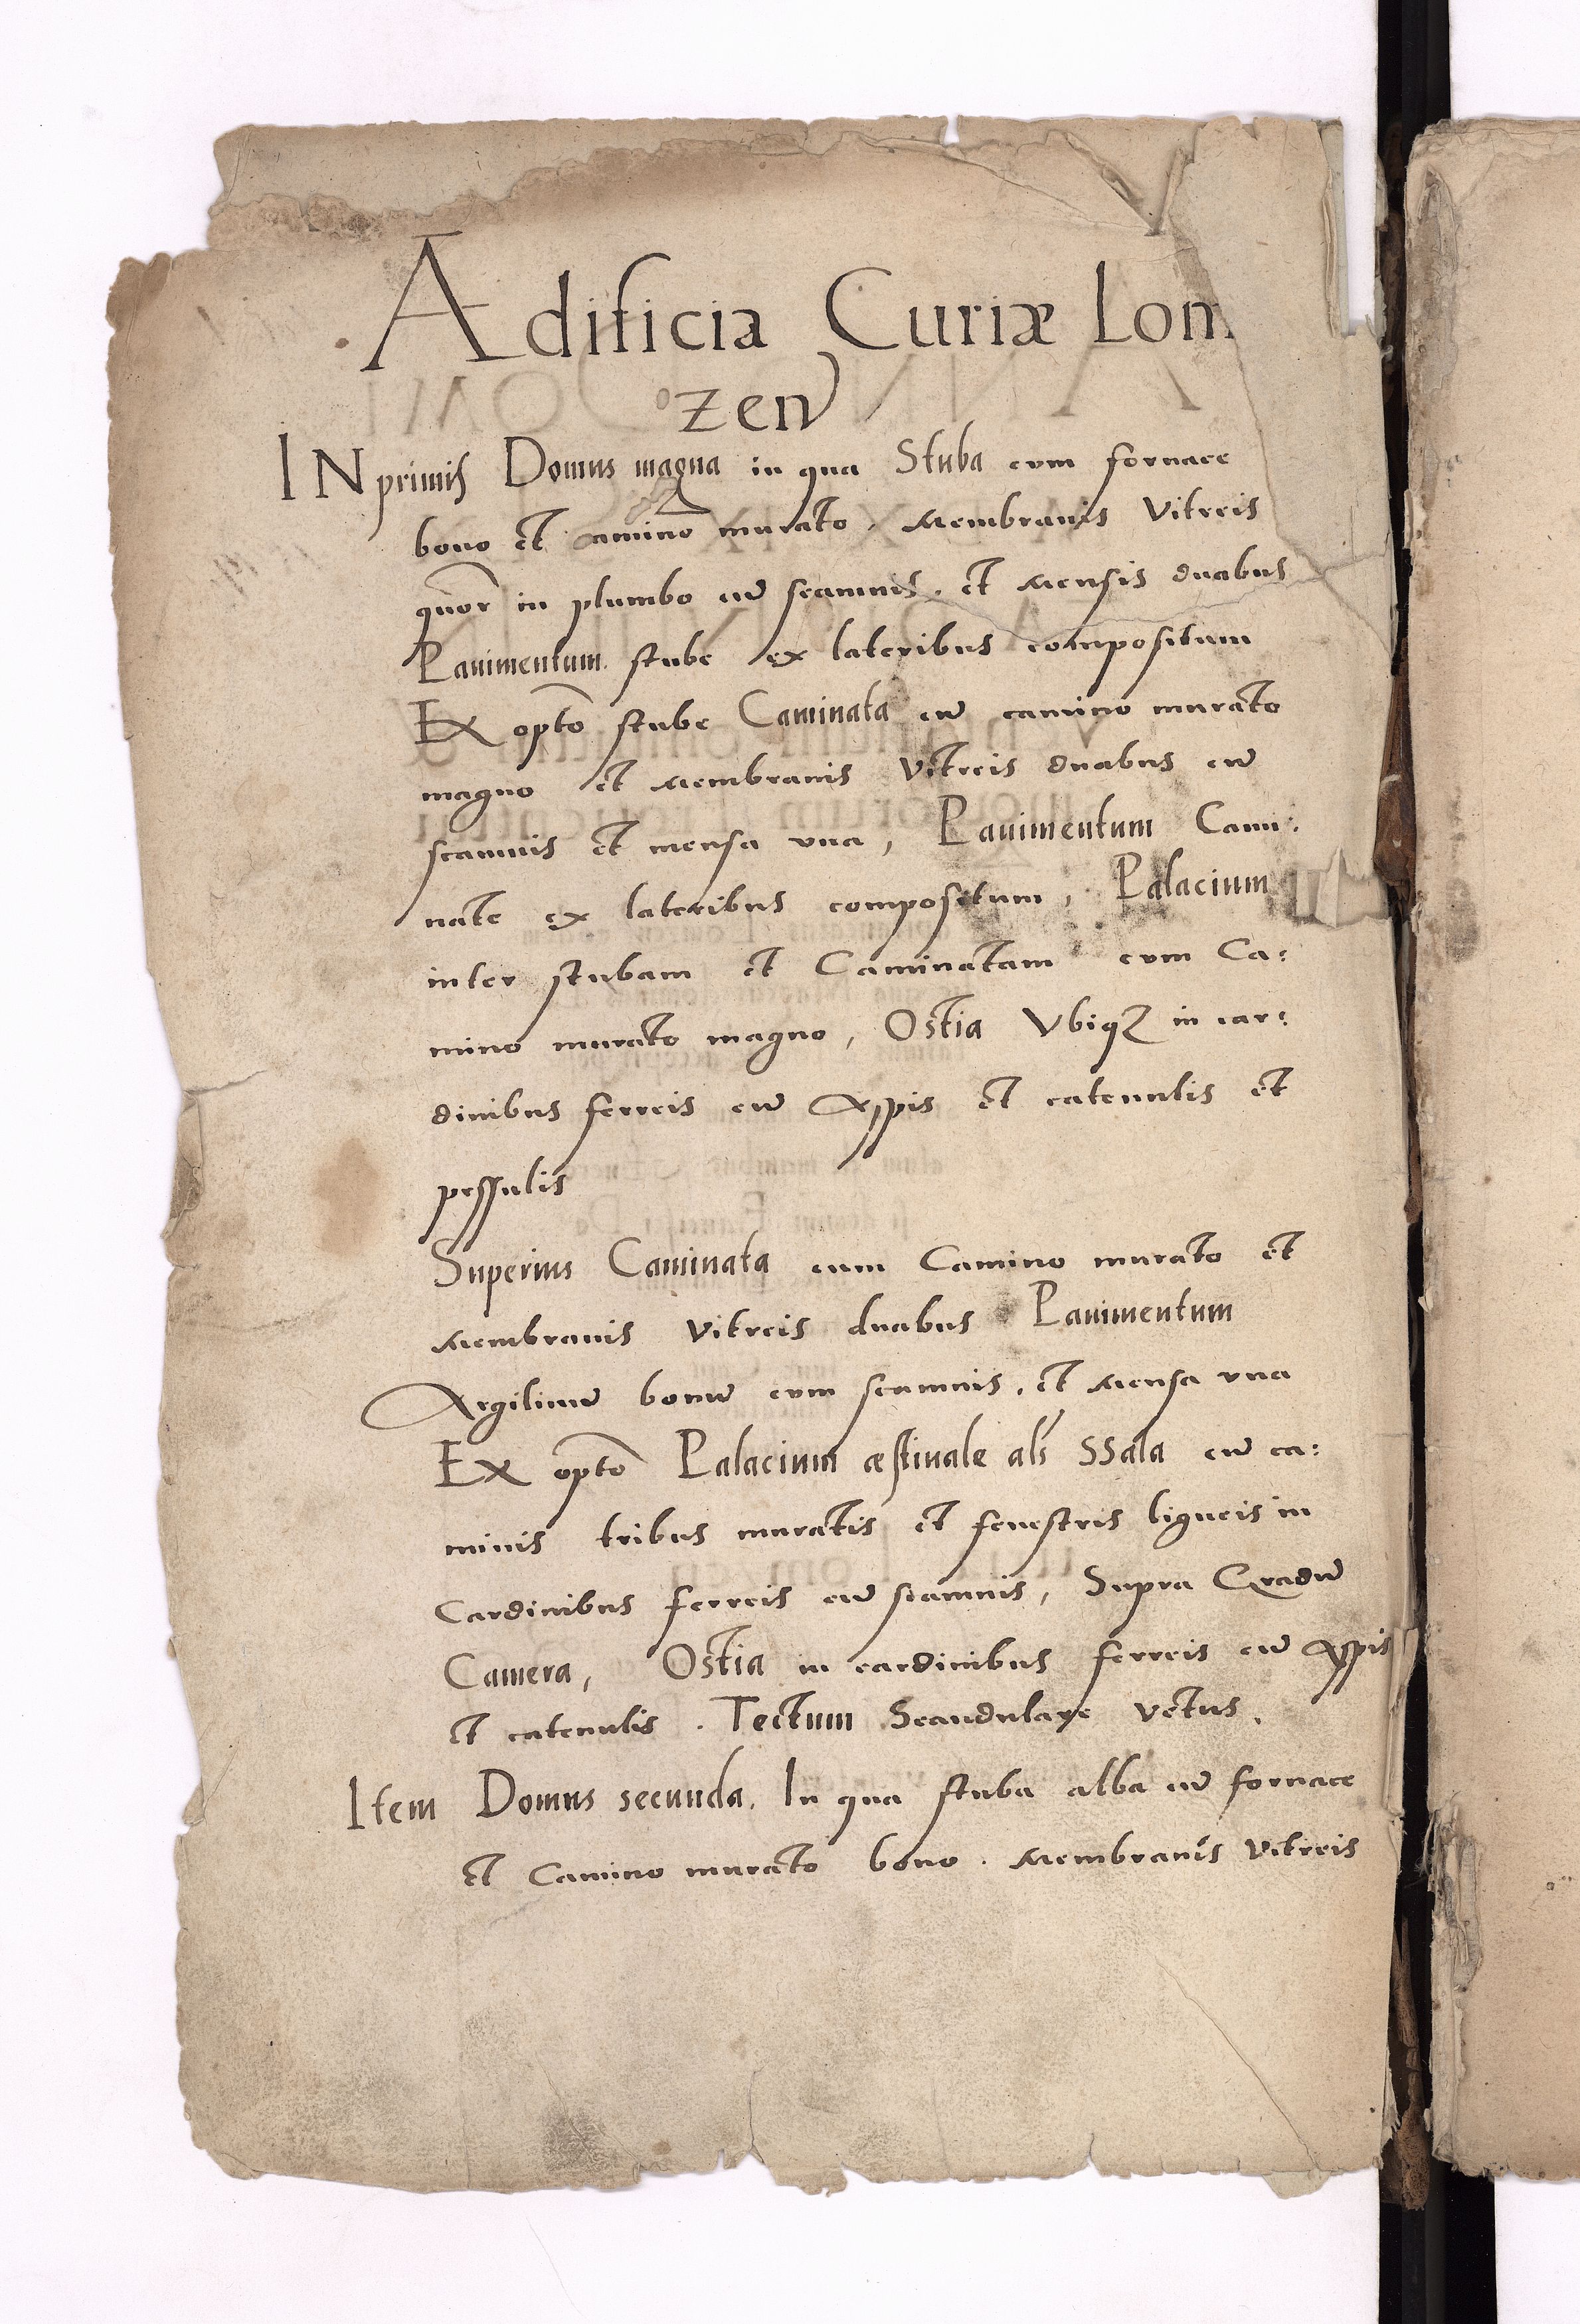 Ædificia Curiæ Lom
zen̄
INprimis Domus magna in qua Stuba cum fornace
bono et camino murato, Membranis Vitreis
quor in plumbo cū scamnis, et mensis duabus
Pauimentum stube ex lateribus compositum
Ex oppto stube Caminata cū camino murato
magno et membranis Vitreis duabus cū
scamnis et mensa vna, Pauimentum Cami:
nate ex lateribus compositum, Palacium
inter stubam et Caminatam cum Ca:
mino murato magno, Ostia Vbiqȝ in car:
dinibus ferreis cū Appis et catenulis et
pessulis
Superius Caminata cum Camino murato et
Membranis Vitreis duabus Pauimentum
Argilinū bonū cum scamnis, et Mensa vna
Ex oppto Palacium æstiuale als SSala cū ca:
minis tribus muratis et fenestris ligneis in
Cardinibus ferreis cū scamnis, Supra Gradū
Camera, Ostia in cardinibus ferreis cū Appis
et catenulis. Tectum Scandulare Vetus.
Item Domus secunda. In qua stuba alba cū fornace
et Camino murato bono. Membranis Vitreis